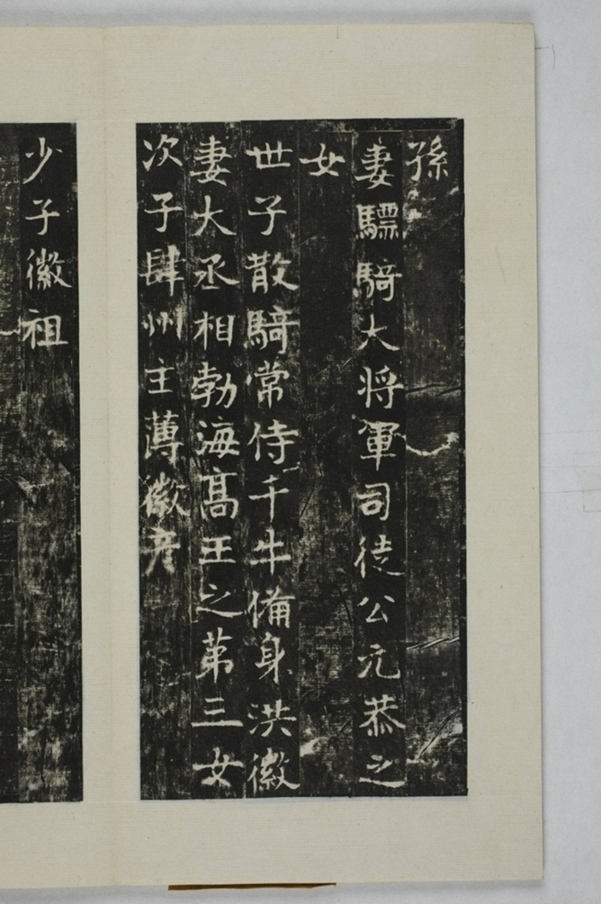 孫
妻驃騎大將軍司徒公元恭之
女
世子散騎常侍千牛備身洪徽
妻大丞相勃海髙王之苐三女
次子肆州主薄徽彦
少子徽祖